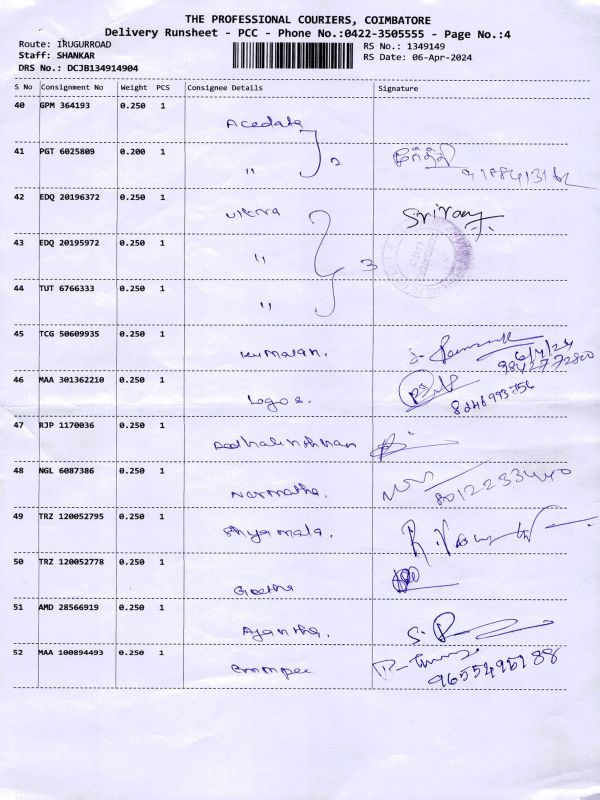 THE PROFESSIONAL COURIERS, COIMBATORE
Delivery Runsheet - PCC - Phone No.:0422-3505555 - Page No.:4
Route: IRUGURROAD
Staff: SHANKAR
DRS No.: DCJB134914904
RS No.: 1349149
RS Date: 06-Apr-2024
S No Consignment No Weight PCS Consignee Details Signature
40 GPM 364193 0.250 1
Acedata
41 PGT 6025809 0.200 1
" 2
42 EDQ 20196372 0.250 1
43 EDQ 20195972 0.250 1
" 3
44 TUT 6766333 0.250 1
"
45 TCG 50609935 0.250 1
Kumaran.
6/4/24
9842772800
46 MAA 301362210 0.250 1
Logos.
8248993756
47 RJP 1170036 0.250 1
48 NGL 6087386 0.250 1
Narmatha. 8012233440
49 TRZ 120052795 0.250 1
Shyamala.
50 TRZ 120052778 0.250 1
Geetha
51 AMD 28566919 0.250 1
Ajantha.
52 MAA 100894493 0.250 1
9655495188